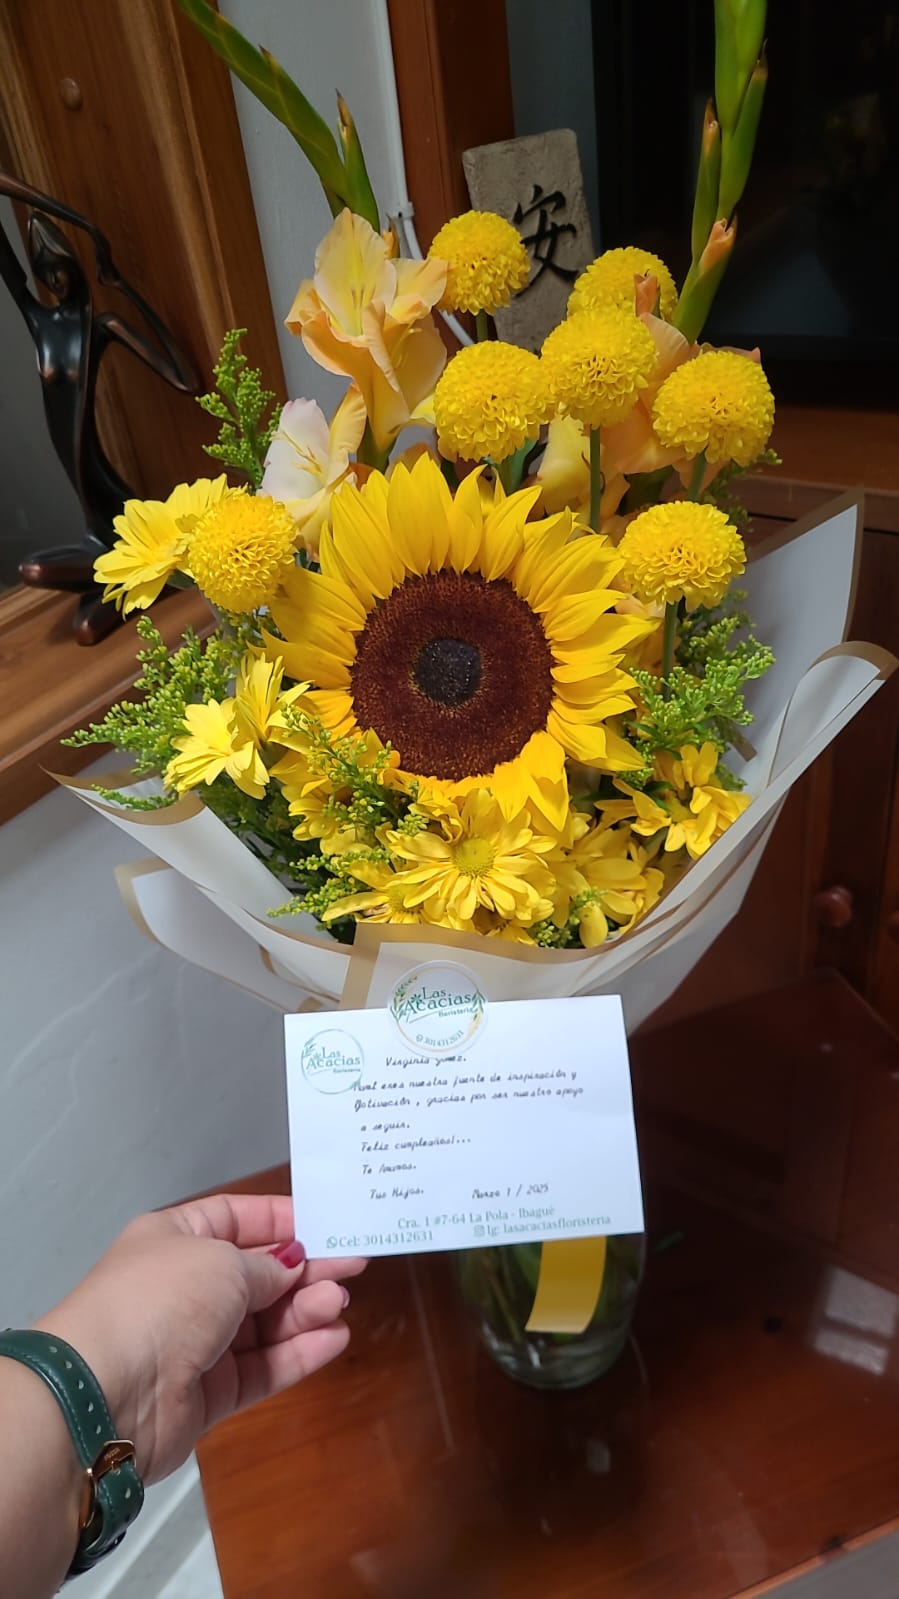 安
Las
Acacias
floristería
3014312631
Las
Acacias
floristería
Virginia
eres nuestra fuente de inspiración y
Motivación, gracias por ser nuestro apoyo
a seguir.
Feliz cumpleaños!...
Te Amamos.
Tus Hijos. Marzo 1 / 2025
Cra. 1 #7-64 La Pola - Ibagué
Cel: 3014312631 Ig: lasacaciasfloristeria